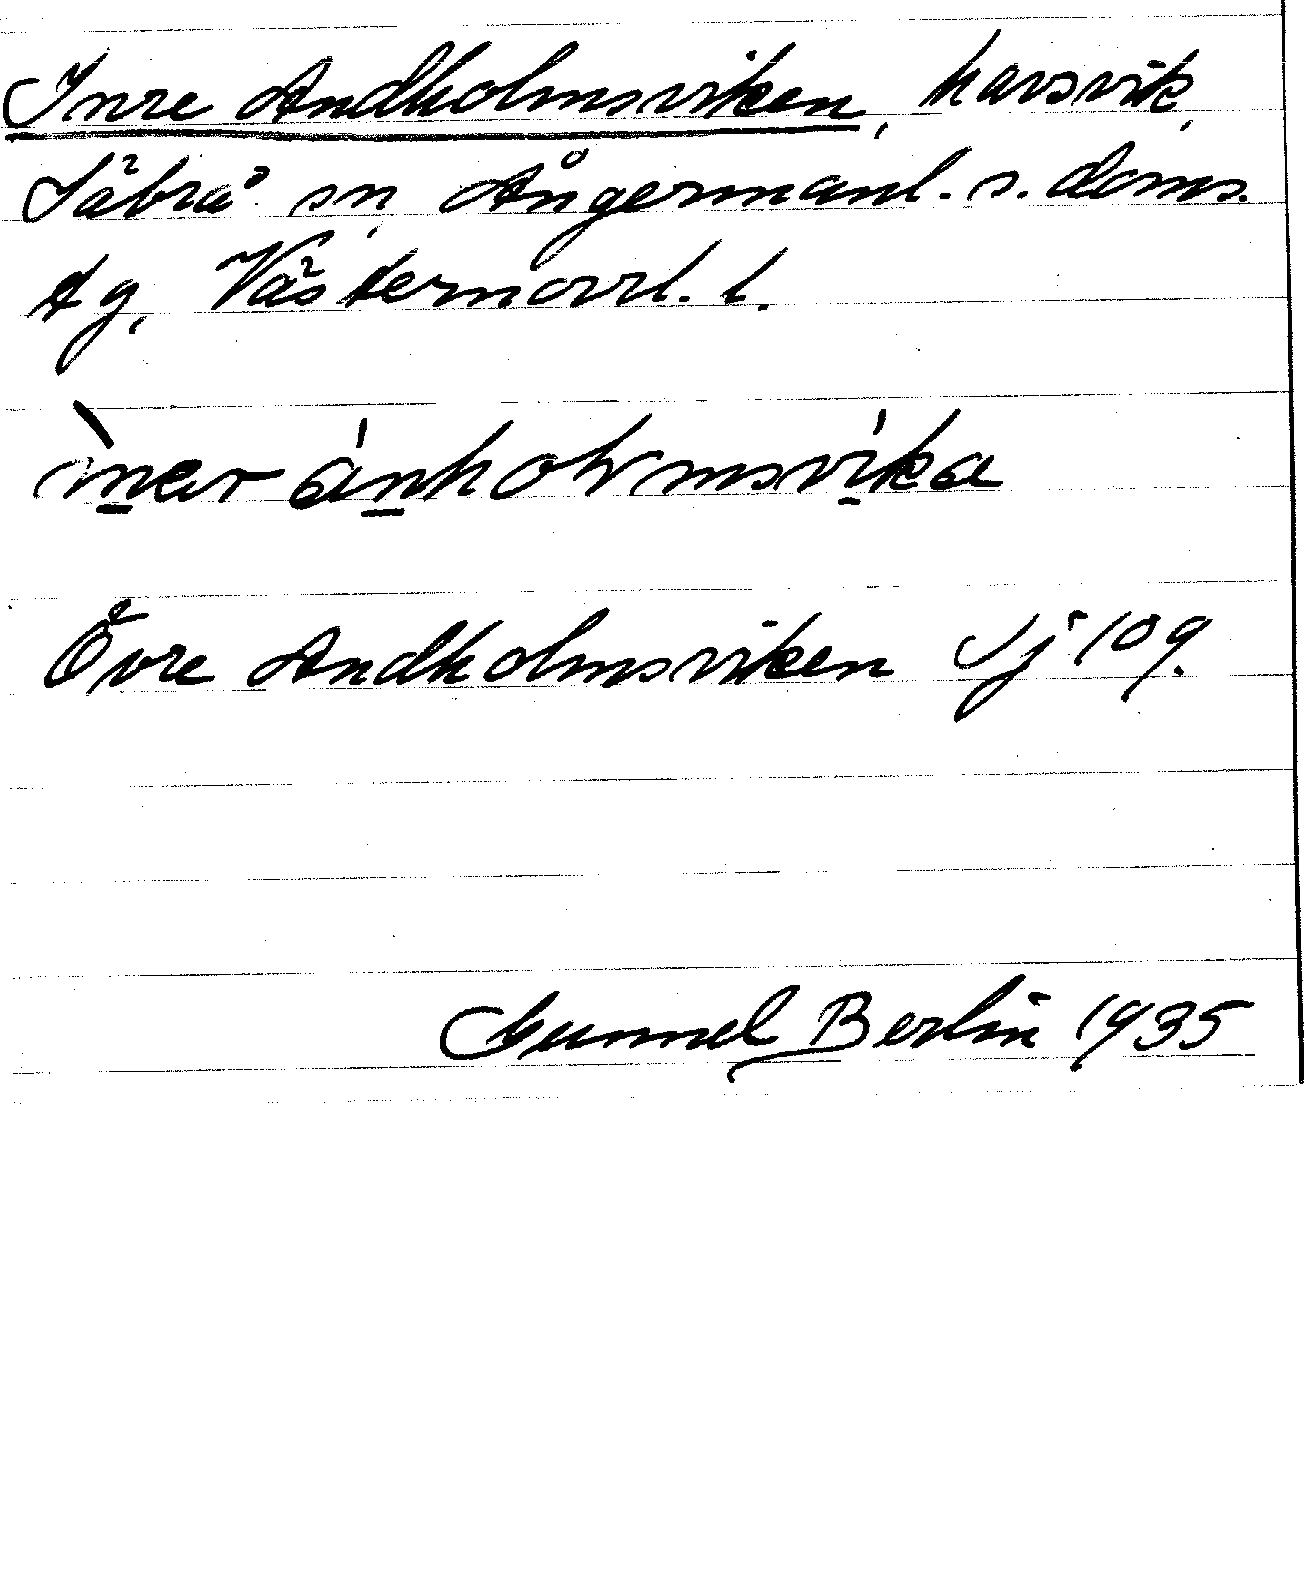 Inre Andholmsviken, havsvik,
Säbrå sn, Ångermanl. s. doms.
tg, Västernorrl. l.
ìn̲ar án̲holmsvi̲ka
Övre Andholmsviken Sj 109.
Gunnel Berlin 1935